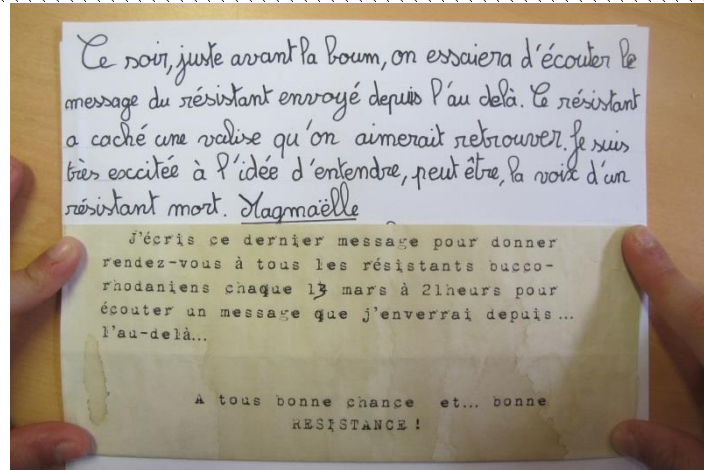 Ce soir, juste avant la boum, on essaiera d'écouter le
message du résistant envoyé depuis l'au delà. Ce résistant
a caché une valise qu'on aimerait retrouver. Je suis
très excitée à l'idée d'entendre, peut être, la voix d'un
résistant mort. Magmaëlle
J'écris ce dernier message pour donner
rendez-vous à tous les résistants bucco-
rhodaniens chaque 13 mars à 21heurs pour
écouter un message que j'enverrai depuis...
l'au-delà...
A tous bonne chance et... bonne
RESISTANCE !